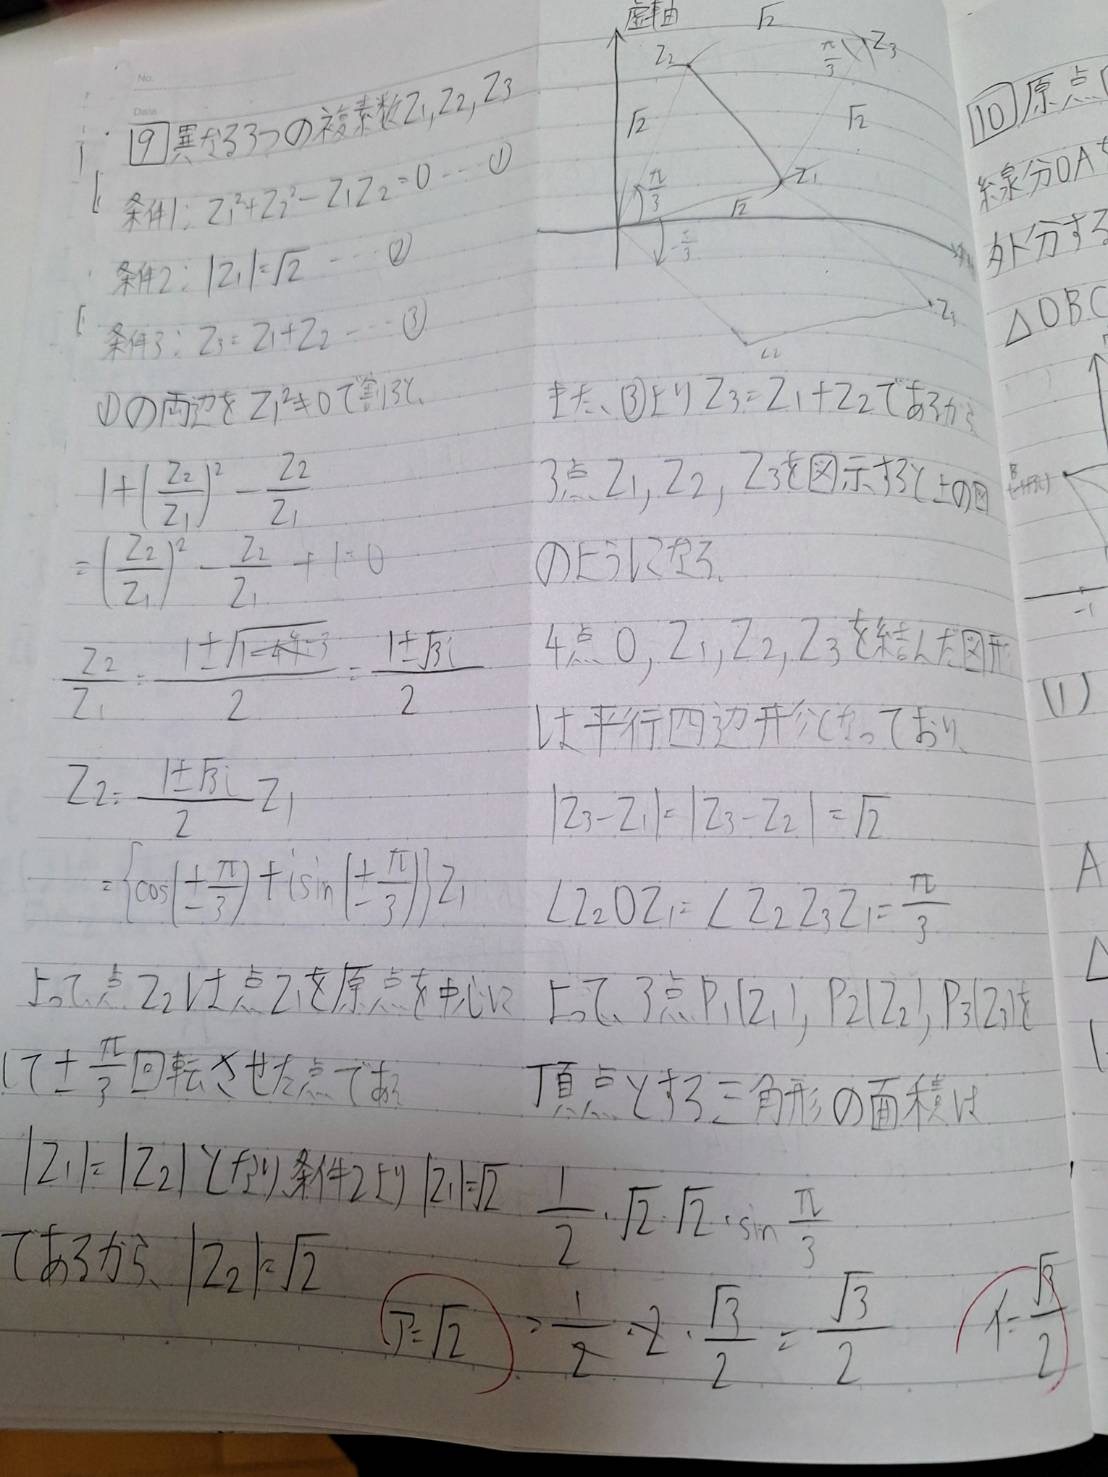 No.
Date
9 異なる3つの複素数Z₁, Z₂, Z₃
条件1: Z₁²+Z₂²-Z₁Z₂=0 … ①
条件2: |Z₁|=√2 … ②
条件3: Z₃=Z₁+Z₂ … ③
①の両辺をZ₁²≠0で割ると、
1+(Z₂/Z₁)²-Z₂/Z₁
=(Z₂/Z₁)²-Z₂/Z₁+1=0
Z₂/Z₁=(1±√)/2=(1±√3i)/2
Z₂=(1±√3i)/2 Z₁
={cos(±π/3)+isin(±π/3)}Z₁
よって、点Z₂は点Z₁を原点を中心に
して±π/3回転させた点である
|Z₁|=|Z₂|となり条件2より|Z₁|=√2
であるから、|Z₂|=√2
ア=√2
虚軸
√2
Z₂
π/3
Z₃
√2
√2
π/3
Z₁
√2
-π/3
Z₃
Z₂
また、③よりZ₃=Z₁+Z₂であるから
3点Z₁, Z₂, Z₃を図示すると上の図
のようになる。
4点0, Z₁, Z₂, Z₃を結んだ図形
は平行四辺形となっており、
|Z₃-Z₁|=|Z₃-Z₂|=√2
∠Z₂0Z₁=∠Z₂Z₃Z₁=π/3
よって、3点P₁(Z₁), P₂(Z₂), P₃(Z₃)を
頂点とする三角形の面積は
1/2・√2・√2・sin π/3
=1/2・2・√3/2=√3/2
イ=√3/2
10 原点
線分OAを
外分する
△OBC
B
-1
(1)
A
△